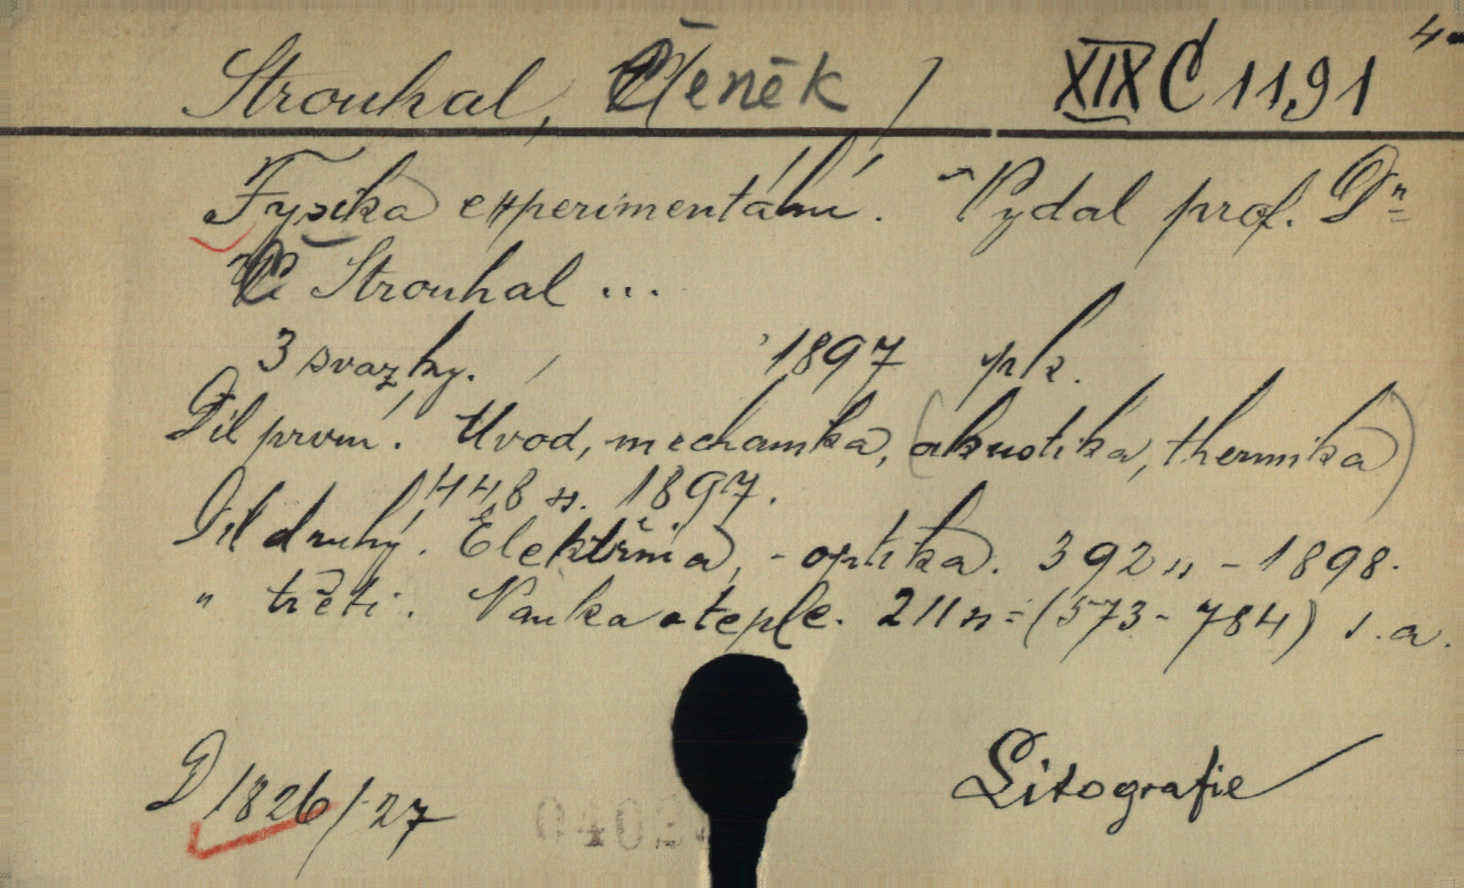 4-
Strouhal, Čeněk / XIX C 1191
Fysika experimentální. Vydal prof. Dr
Č Strouhal ...
3 svazky. 1897
Díl první. Úvod, mechanika, (akustika, thermika)
448 s. 1897.
Díl druhý. Elektřina, - optika. 392 s - 1898.
" třetí. Nauka o teple. 211 s = (573-784) s.a.
D 1826/27
Litografie